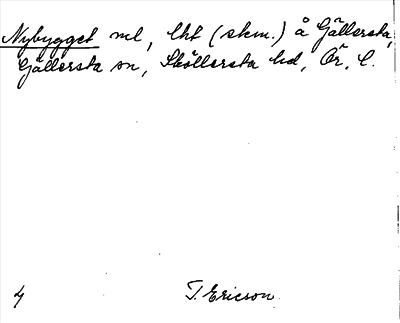 Nybygget ml, lht (skm.) å Gällersta,
Gällersta sn, Sköllersta hd, Ör. l.
4 T. Ericson